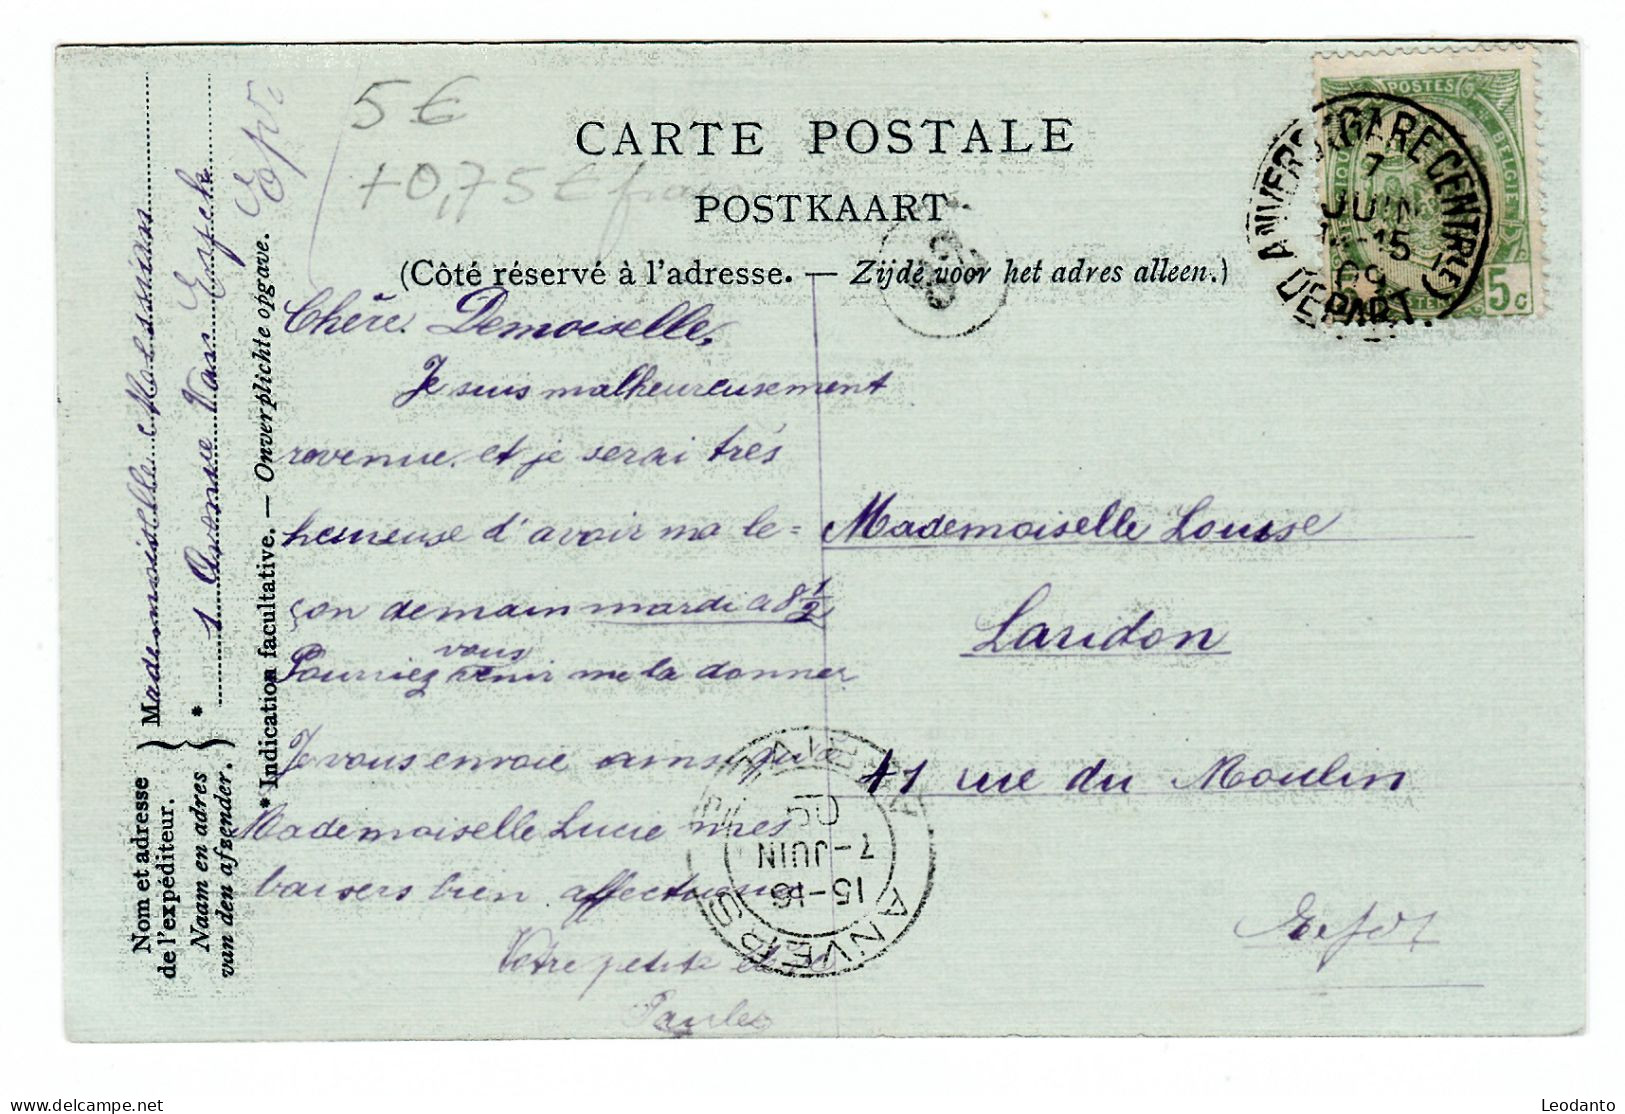 5 €
+ 0,75 € frais
CARTE POSTALE
POSTKAART
(Côté réservé à l'adresse. — Zijde voor het adres alleen.)
POSTES
BELGIE
5 C
ANVERS (GARE CENTRALE)
7
JUIN
15
09
DEPART
Chère Demoiselle,
Je suis malheureusement
revenue et je serai très
heureuse d'avoir ma le=
çon demain mardi a 8 1/2
Pourriez vous venir me la donner
Je vous envoie ainsi qu'a
Mademoiselle Lucie mes
baisers bien affectueux
Votre petite élève
Paule
Mademoiselle Louise
Landon
41 rue du Moulin
ANVERS
15-16
7-JUIN
09
Nom et adresse
de l'expéditeur.
Naam en adres
van den afzender.
Mademoiselle
* 1 Avenue Van
* Indication facultative. — Onverplichte opgave.
delcampe.net
Leodanto